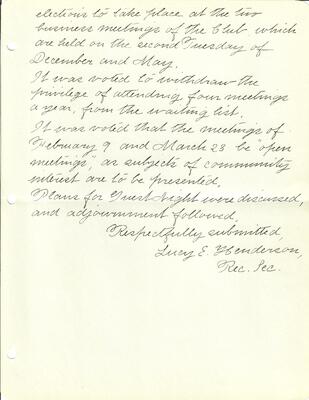 elections to take place at the two
business meetings of the Club which
are held on the second Tuesday of
December and May.
It was voted to withdraw the
privilege of attending four meetings
a year, from the waiting list.
It was voted that the meetings of
February 9 and March 23 be "open
meetings", as subjects of community
interest are to be presented.
Plans for Guest Night were discussed,
and adjournment followed.
Respectfully submitted,
Lucy E. Henderson,
Rec. Sec.